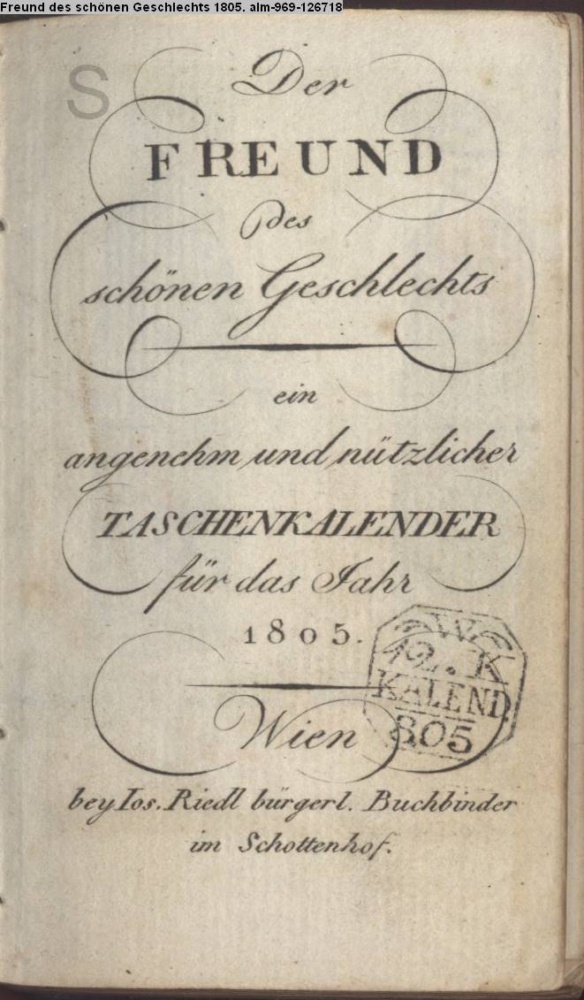 Freund des schönen Geschlechts 1805. alm-969-126718
S
Der
FREUND
des
schönen Geschlechts
ein
angenehm und nützlicher
TASCHENKALENDER
für das Jahr
1805.
W
12. K
KALEND
805
Wien
bey Ios. Riedl bürgerl. Buchbinder
im Schottenhof.